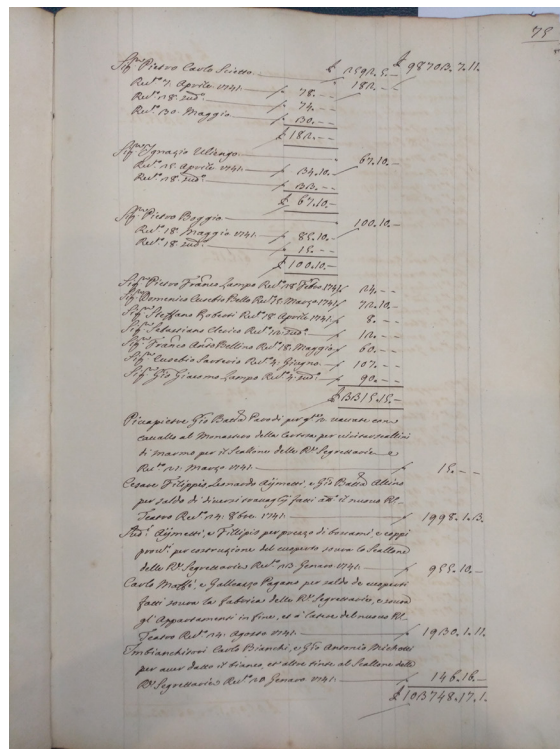 75
Sig.r Pietro Carlo Scietto £ 2592.5.- £ 98703.7.11.
Rev.a 7. Aprile 1741. £ 78.-- 182.--
Rev.a 18. sud.o £ 74.--
Rev.a 30. Maggio £ 30.--
£ 182.--
Sig.r Ignazio 67.10.-
Rev.a 15. Aprile 1741. £ 34.10.-
Rev.a 18. sud.o £ 33.--
£ 67.10.-
Sig.r Pietro Boggio 100.10.-
Rev.a 18. Maggio 1741. £ 85.10.-
Rev.a 18. sud.o £ 15.--
£ 100.10.-
Sig.r Pietro Fran.co Lampo Rev.a 1741. £ 24.--
Sig.r Domenico Eusebio Bella Rev.a Marzo 1741. £ 72.10.-
Sig.r Steffano Roberti Rev.a 18. Aprile 1741. £ 8.--
Sig.r Sebastiano Clerico Rev.a 12. sud.o £ 12.--
Sig.r Fran.co Ant.o Bellino Rev.a 18. Maggio £ 60.--
Sig.r Eusebio Rev.a 4. Giugno £ 107.--
Sig.r Gio Giacomo Lampo Rev.a 4. sud.o £ 90.--
£ 3315.15.-
Piccapietre Gio Batta Parodi per con
cavallo al Monastero della Certosa per
di marmo per il Scallone delle R.e Segrettarie
Rev.a 21. Marzo 1741. £ 15.--
Cesare Filippis, Leonardo Aijmetti, e Gio Batta Albino
per saldo di diversi travaglj fatti att.o il nuovo R.l
Teatro Rev.a 4. 8bre. 1741. £ 1998.1.3.
Sud.i Aijmetti, e Fillipis per prezzo di boscami, e coppi
per costruzione del coperto sovra lo Scallone
delle R.e Segrettarie Rev.a 13 Genaro 1741. £ 955.10.-
Carlo Maffè, e Galleazzo Pagano per saldo de coperti
fatti sovra la fabrica delle R.e Segrettarie, e sovra
gl'Appartamenti in fine, et a latere del nuovo R.l
Teatro Rev.a 4. Agosto 1741. £ 1930.1.11.
Imbianchitori Carlo Bianchi, e Gio Antonio Michetti
per aver datto il bianco, et altre tinte al Scallone delle
R.e Segrettarie Rev.a 20 Genaro 1741. £ 146.16.-
£ 103748.17.1.